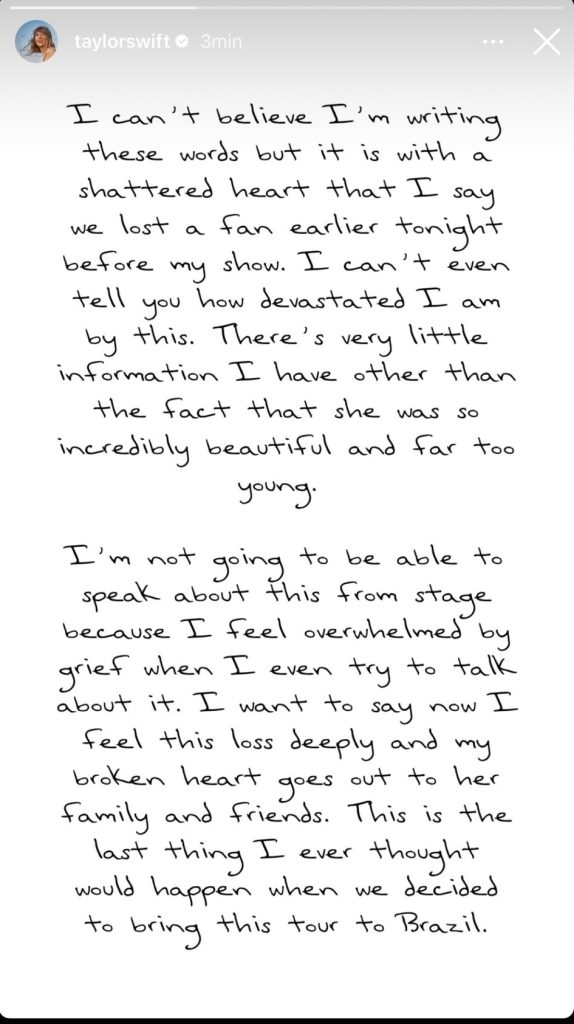 taylorswift 3min
I can't believe I'm writing
these words but it is with a
shattered heart that I say
we lost a fan earlier tonight
before my show. I can't even
tell you how devastated I am
by this. There's very little
information I have other than
the fact that she was so
incredibly beautiful and far too
young.
I'm not going to be able to
speak about this from stage
because I feel overwhelmed by
grief when I even try to talk
about it. I want to say now I
feel this loss deeply and my
broken heart goes out to her
family and friends. This is the
last thing I ever thought
would happen when we decided
to bring this tour to Brazil.